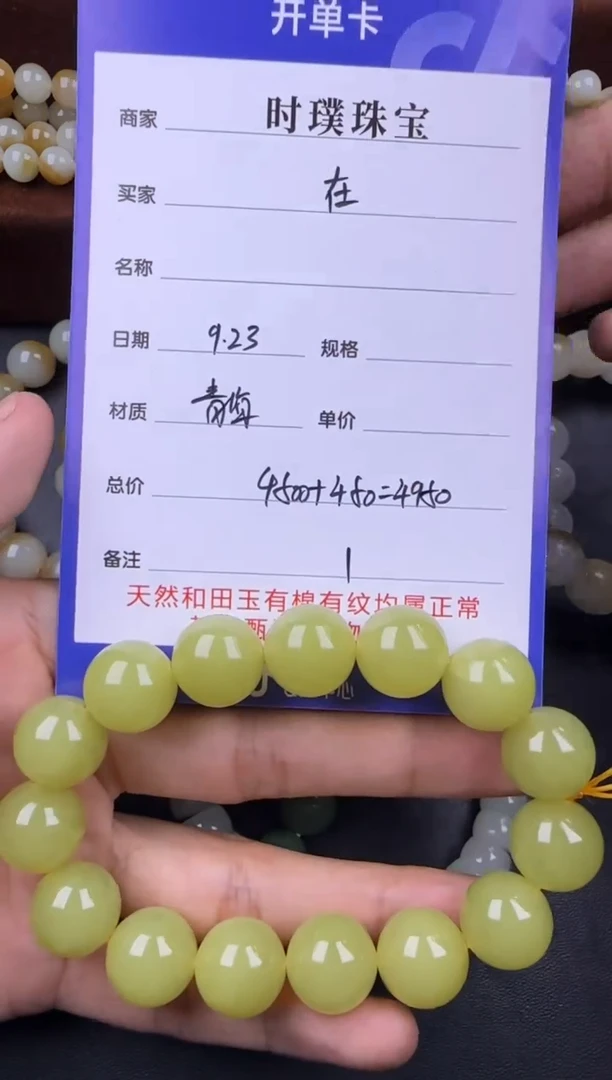 开单卡
商家 时璞珠宝
买家 在
名称
日期 9.23 规格
材质 青海 单价
总价 4500+450=4950
备注 1
天然和田玉有棉有纹均属正常